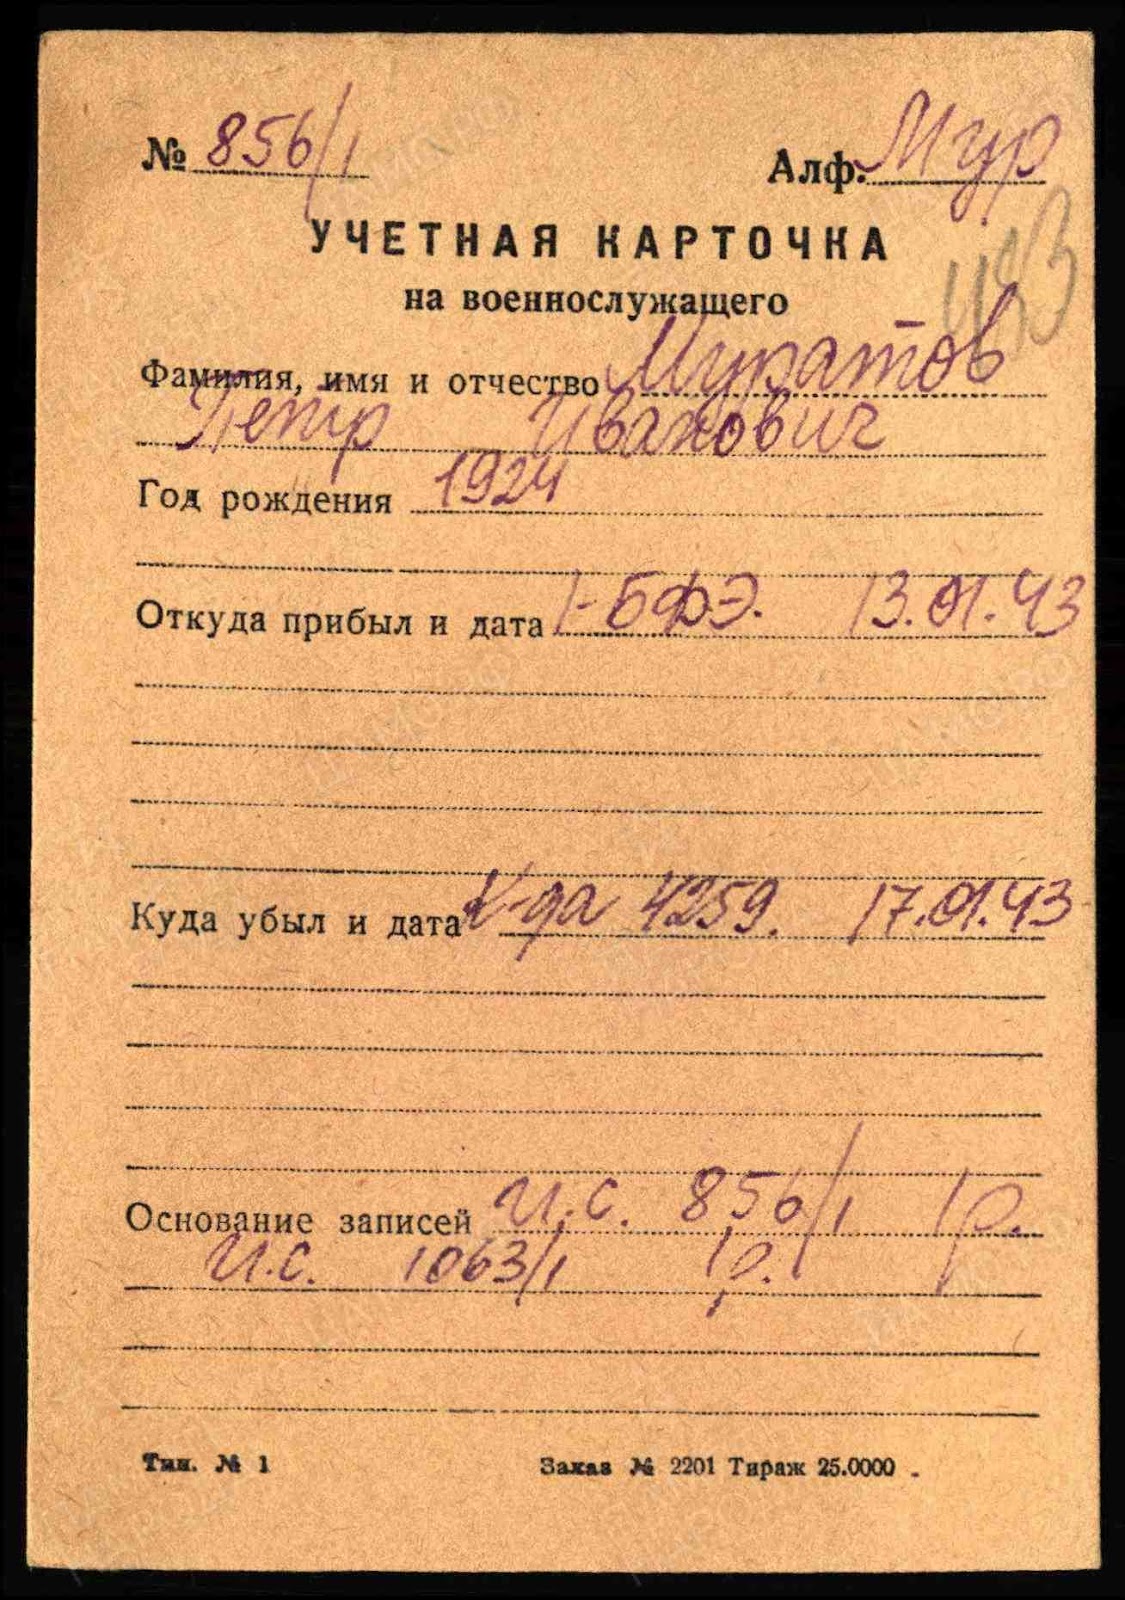 № 856/1 Алф. Мур
УЧЕТНАЯ КАРТОЧКА
на военнослужащего
Фамилия, имя и отчество Муратов
Петр Иванович
Год рождения 1924
Откуда прибыл и дата 1-БФЭ. 13.01.43
Куда убыл и дата К-да 4259. 17.01.43
Основание записей И.С. 856/1 р.
И.С. 1063/1 р.
Тип. № 1 Заказ № 2201 Тираж 25.0000